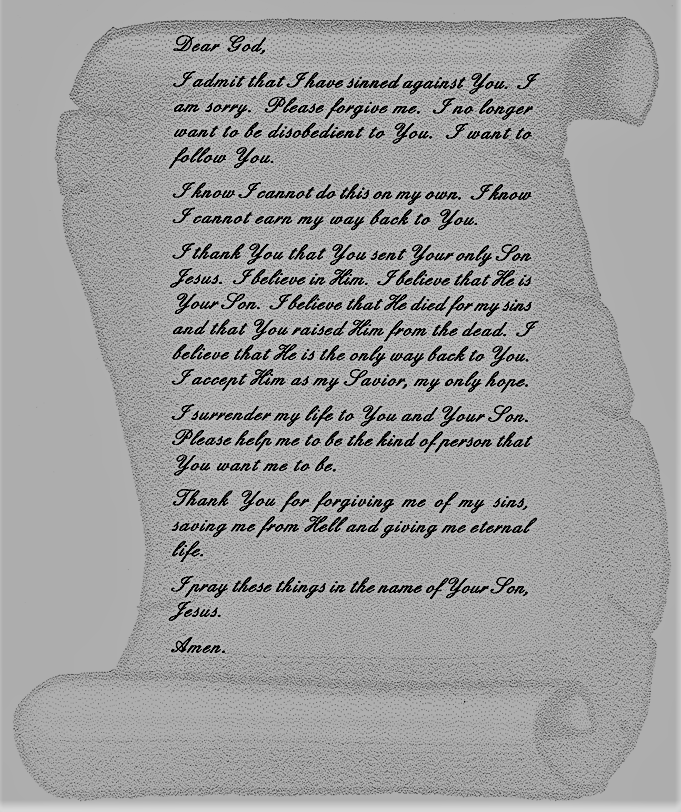 Dear God,
I admit that I have sinned against You. I
am sorry. Please forgive me. I no longer
want to be disobedient to You. I want to
follow You.
I know I cannot do this on my own. I know
I cannot earn my way back to You.
I thank You that You sent Your only Son
Jesus. I believe in Him. I believe that He is
Your Son. I believe that He died for my sins
and that You raised Him from the dead. I
believe that He is the only way back to You.
I accept Him as my Savior, my only hope.
I surrender my life to You and Your Son.
Please help me to be the kind of person that
You want me to be.
Thank You for forgiving me of my sins,
saving me from Hell and giving me eternal
life.
I pray these things in the name of Your Son,
Jesus.
Amen.